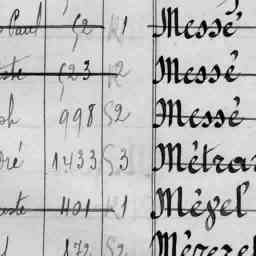 Paul 52 K1 Messé
ste 523 K2 Messé
ph 998 S2 Messé
dré 1433 S3 Métra
uste 401 K1 Méyel
172 S2 Mézerel